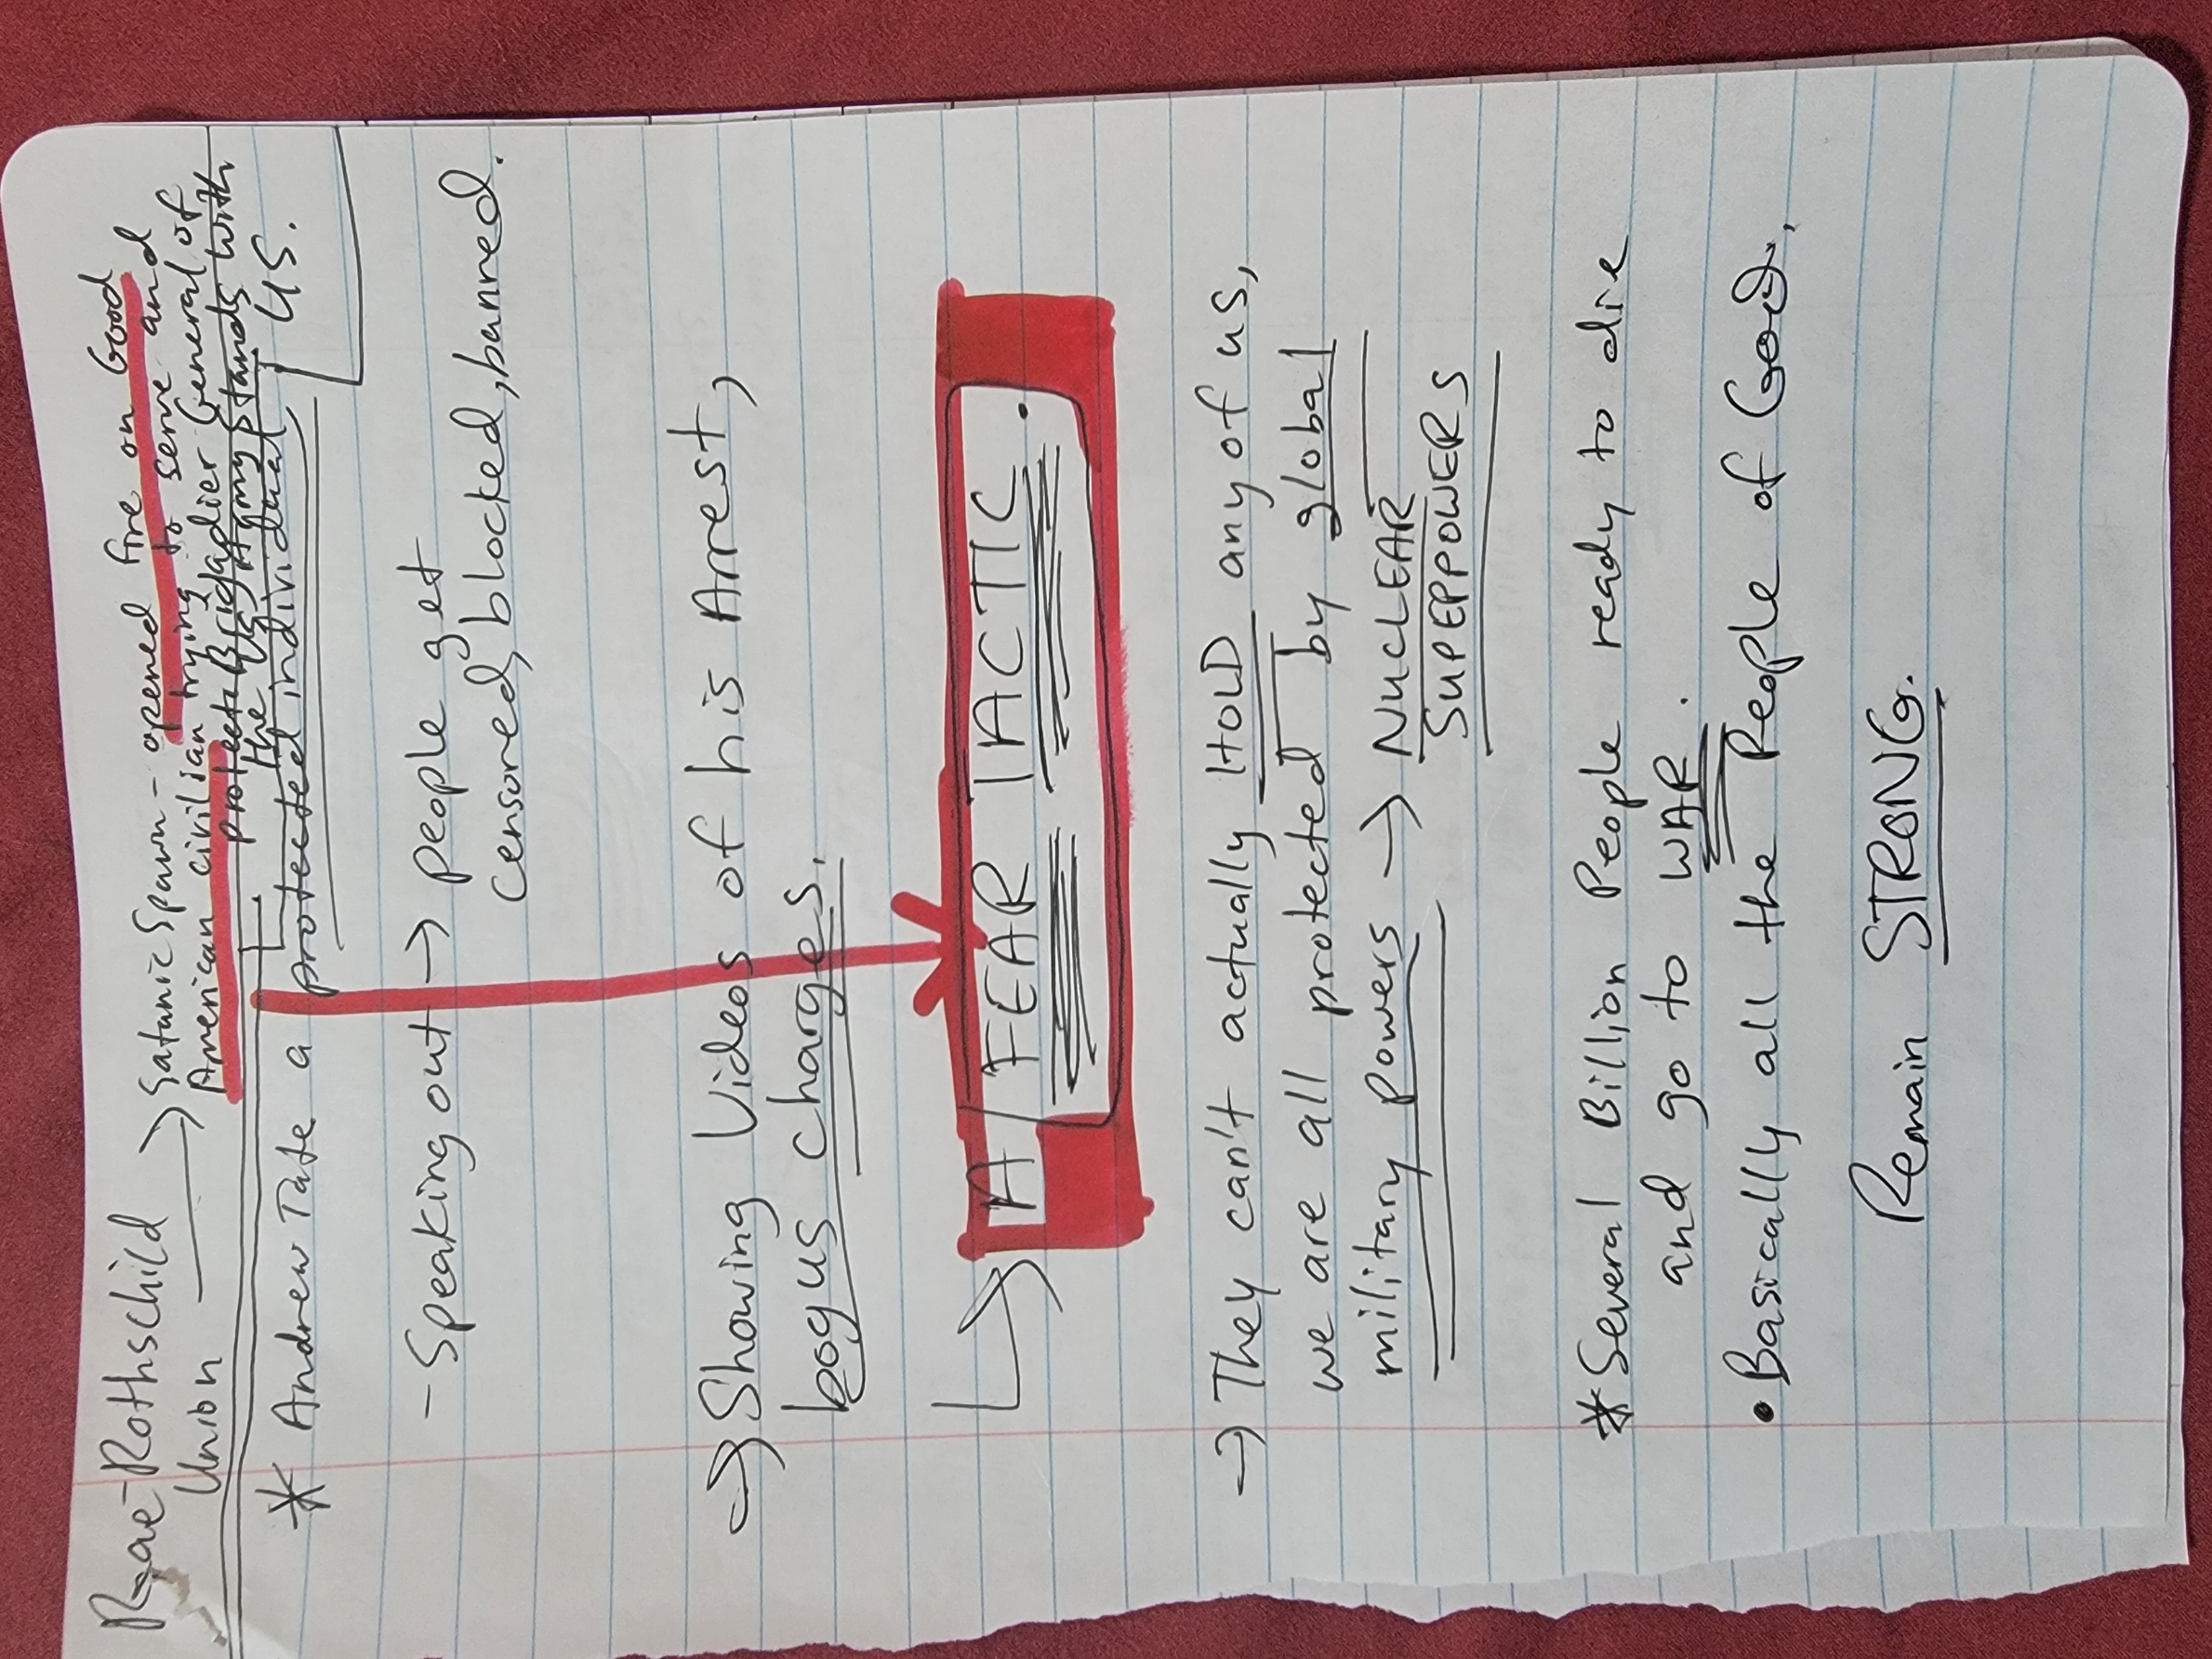 Rae-Rothschild
Union → Satanic Spawn - opened fire on Good
American civilian trying to serve and
protect. Brigadier General of
the US Army Stands with
US.
* Andrew Tate a protected individual
- Speaking out → people get
censored, blocked, banned.
→ Showing Videos of his Arrest,
bogus charges.
→ A FEAR TACTIC.
→ They can't actually HOLD any of us,
we are all protected by global
military powers → NUCLEAR
SUPERPOWERS
* Several Billion People ready to die
and go to WAR.
• Basically all the People of God.
Remain STRONG.